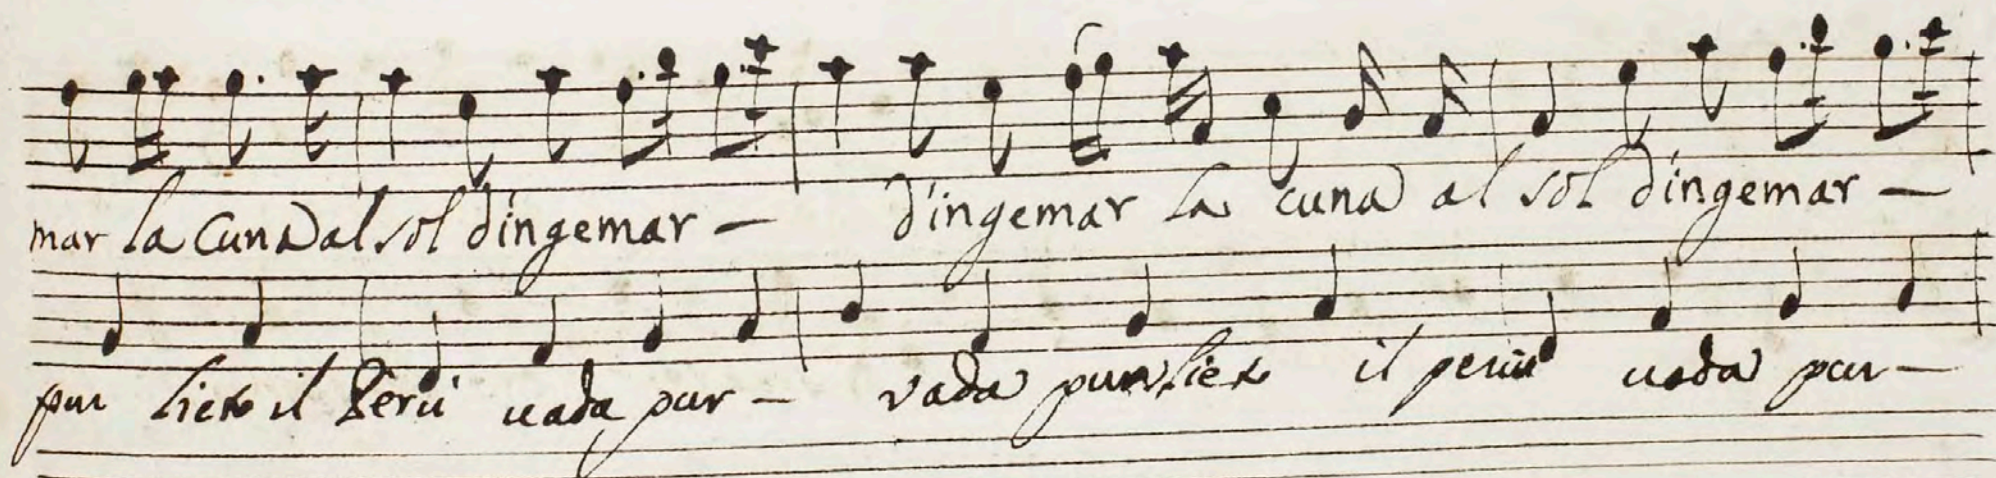 mar la cuna al sol dingemar – dingemar la cuna al sol dingemar –
pur lieto il Perù uada pur – vada pur lieto il perù uada pur –